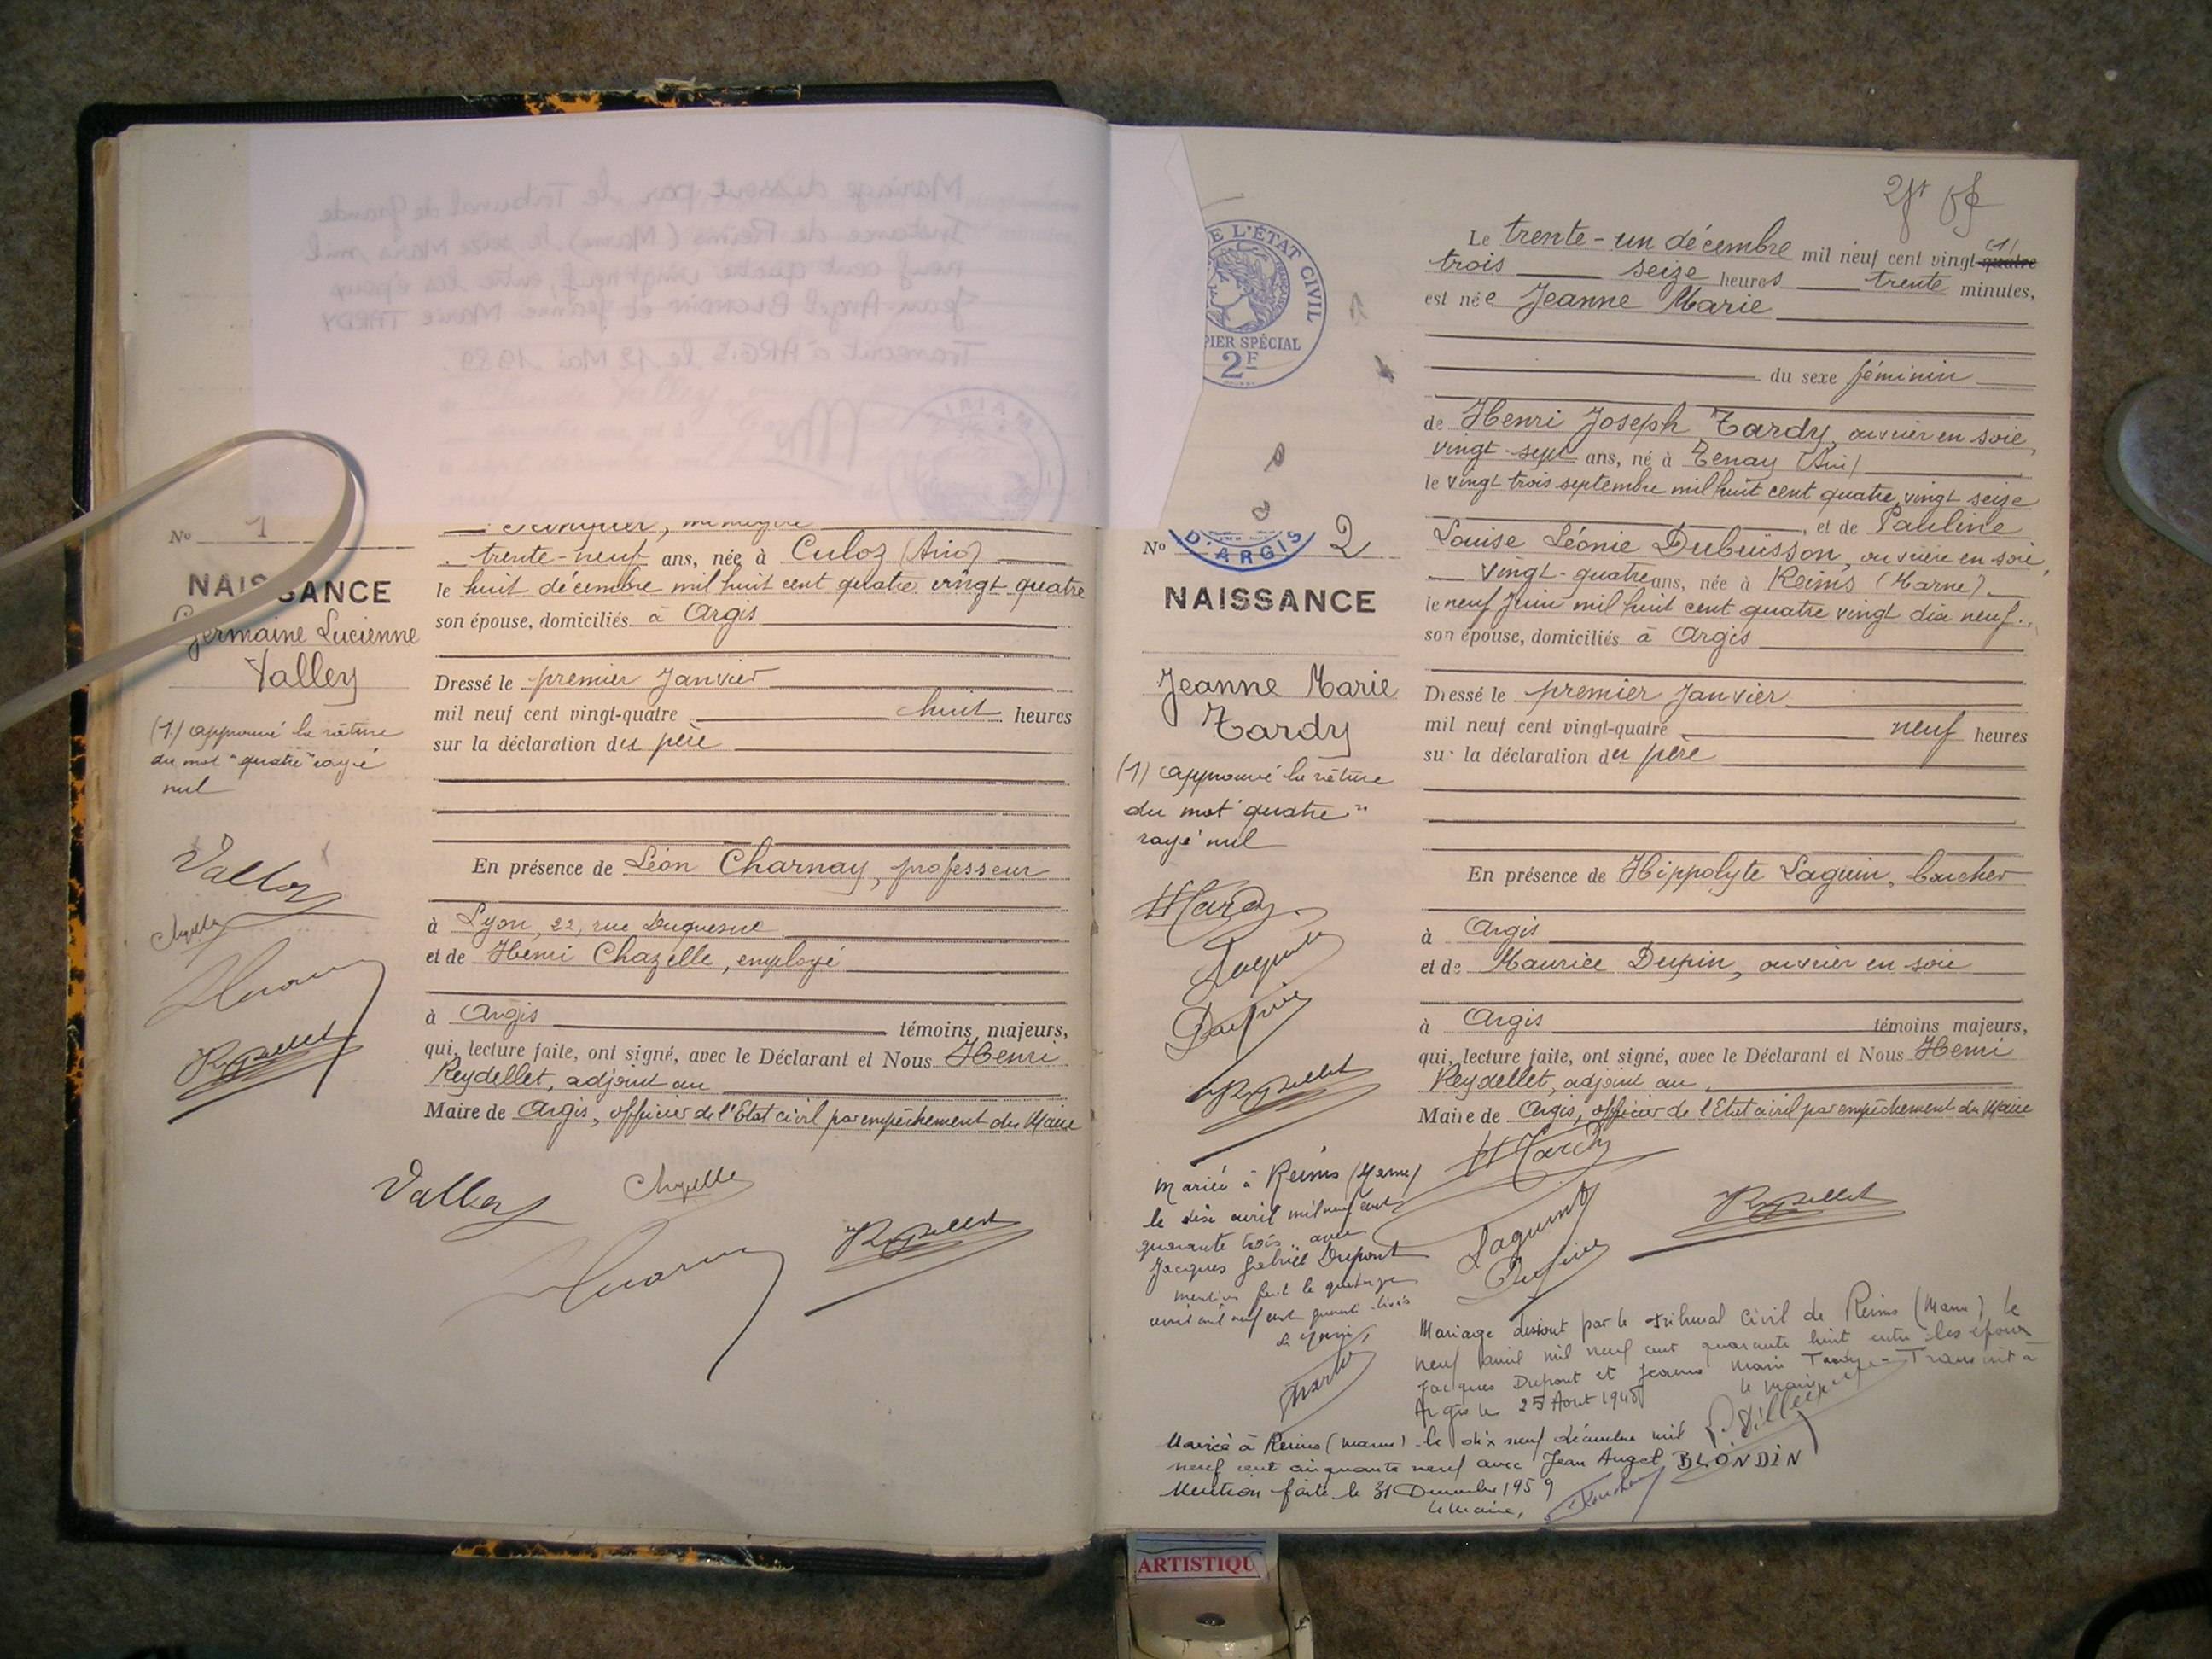 Mariage dissout par le Tribunal de Grande
Instance de Reims (Marne) le seize Mars mil
neuf cent quatre vingt neuf, entre les époux
Jean-Angel BLONDIN et Jeanne Marie TARDY
Transcrit à ARGIS le 12 Mai 1989.
MAIRIE
No 1
NAISSANCE
Germaine Lucienne
Valley
(1) approuvé la rature
du mot "quatre" rayé
nul
trente-neuf ans, née à Culoz (Ain)
le huit décembre mil huit cent quatre vingt quatre
son épouse, domiciliés à Argis
Dressé le premier Janvier
mil neuf cent vingt-quatre huit heures
sur la déclaration du père
En présence de Léon Charnay, professeur
à Lyon, 22, rue Duquesne
et de Henri Chazelle, employé
à Argis témoins majeurs,
qui, lecture faite, ont signé, avec le Déclarant et Nous Henri
Reydellet, adjoint au
Maire de Argis, officier de l'Etat civil par empêchement du Maire
Valley
Reydellet
E L'ÉTAT CIVIL
PIER SPÉCIAL
2F
D'ARGIS
No 2
NAISSANCE
Jeanne Marie
Tardy
(1) approuvé la rature
du mot "quatre"
rayé nul
Le trente-un décembre mil neuf cent vingt-quatre (1)
trois seize heures trente minutes,
est née Jeanne Marie
du sexe féminin
de Henri Joseph Tardy, ouvrier en soie,
vingt-sept ans, né à Tenay (Ain)
le vingt trois septembre mil huit cent quatre vingt seize
, et de Pauline
Louise Léonie Dubuisson, ouvrière en soie,
vingt-quatre ans, née à Reims (Marne)
le neuf Juin mil huit cent quatre vingt dix neuf.
son épouse, domiciliés à Argis
Dressé le premier Janvier
mil neuf cent vingt-quatre neuf heures
sur la déclaration du père
En présence de Hippolyte Laguin, boucher
à Argis
et de Maurice Dupin, ouvrier en soie
à Argis témoins majeurs,
qui, lecture faite, ont signé, avec le Déclarant et Nous Henri
Reydellet, adjoint au
Maire de Argis, officier de l'Etat civil par empêchement du Maire
H Tardy
Reydellet
Mariée à Reims (Marne)
le dix avril mil neuf cent
quarante trois avec
Jacques Gabriel Dupont
mention faite le quatorze
avril mil neuf cent quarante-trois
Mariage dissout par le tribunal civil de Reims (Marne) le
neuf avril mil neuf cent quarante huit entre les époux
Jacques Dupont et Jeanne Marie Tardy - Transcrit à
Argis le 25 Aout 1948
le Maire
Mariée à Reims (Marne) le dix neuf décembre mil
neuf cent cinquante neuf avec Jean Angel BLONDIN
Mention faite le 31 Decembre 1959
Le Maire,
ARTISTIQU